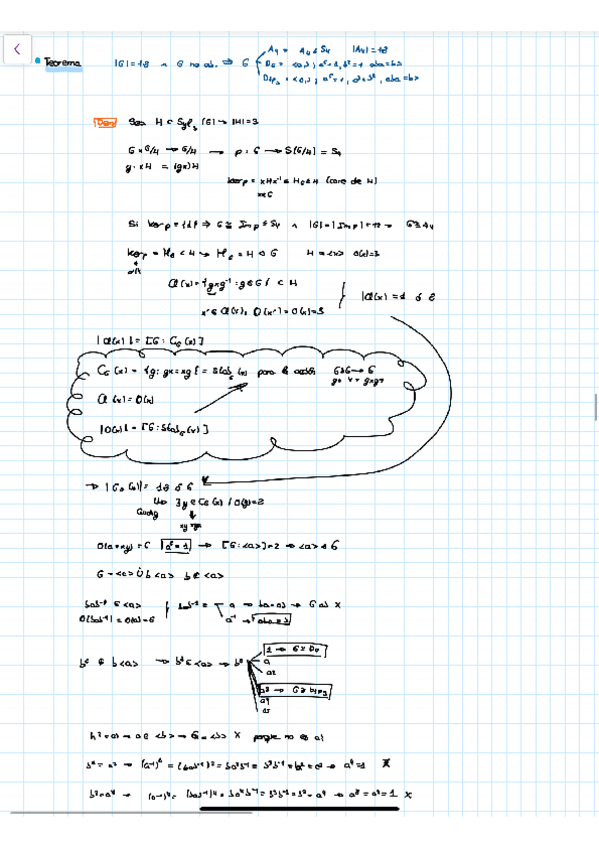 Teorema |G|=12 ∧ G no ab. ⇒ G
A4 = A4 ⊲ S4 |A4|=12
D6 = <a,b; a⁶=1, b²=1 aba=b>
Dip3 = <a,b; a⁶=1, a³=b², aba=b>
Dem Sea H ∈ Syl3 (G) → |H|=3
G×G/H → G/H → ρ: G → S(G/H) = S4
g·xH = (gx)H
kerρ = xHx⁻¹ = HG ⊲ H (core de H)
x∈G
Si kerρ = {1} ⇒ G ≅ Imρ ≤ S4 ∧ |G|=|Imρ|=12 → G≅A4
kerρ = HG < H → HG = H ⊲ G H=<x> O(x)=3
Cl(x)={gxg⁻¹: g∈G} ⊂ H
x'∈ Cl(x), O(x')=O(x)=3
|Cl(x)|=1 ó 2
|Cl(x)| = [G: CG(x)]
CG(x) = {g: gx=xg} = StabG(x) para la acción G×G→G
Cl(x) = O(x)
|O(x)| = [G: StabG(x)]
→ |CG(x)| = 12 ó 6
∃y∈CG(x) / O(y)=2
Cauchy
O(a=xy)=6 a⁶=1 → [G:<a>]=2 → <a> ⊲ G
G = <a> ∪̇ b<a> b∉<a>
bab⁻¹ ∈ <a>
O(bab⁻¹)=O(a)=6
bab⁻¹ = a → ba=ab → G ab X
a⁻¹ → aba=b
b² ∉ b<a> → b²∈<a> → b²
1 → G≅D6
a
a²
a³ → G≅Dip3
a⁴
a⁵
b²=a → a∈<b> → G=<b> X porque no es ab
b²=a² → (a⁻¹)²=(bab⁻¹)²=ba²b⁻¹=b²b⁻¹=b²=a² → a⁴=1 X
b²=a⁴ → (a⁻¹)⁴=(bab⁻¹)⁴=ba⁴b⁻¹=b²b⁻¹=b²=a⁴ → a⁸=a²=1 X